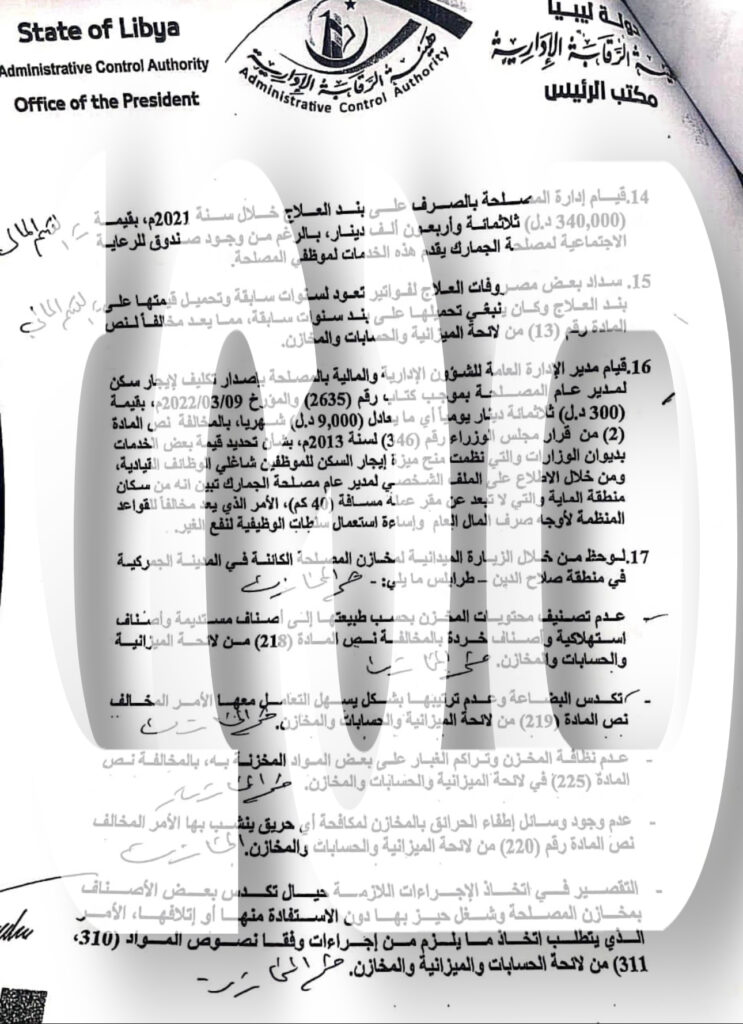 State of Libya
Administrative Control Authority
Office of the President
هيئة الرقابة الإدارية
Administrative Control Authority
دولة ليبيا
هيئة الرقابة الإدارية
مكتب الرئيس
14.قيام إدارة المصلحة بالصرف على بند العلاج خلال سنة 2021م، بقيمة
(340,000 د.ل) ثلاثمائة وأربعون ألف دينار، بالرغم من وجود صندوق للرعاية
الاجتماعية لمصلحة الجمارك يقدم هذه الخدمات لموظفي المصلحة.
15. سداد بعض مصروفات العلاج لفواتير تعود لسنوات سابقة وتحميل قيمتها على
بند العلاج وكان ينبغي تحميلها على بند سنوات سابقة، مما يعد مخالفاً لنص
المادة رقم (13) من لائحة الميزانية والحسابات والمخازن.
16.قيام مدير الإدارة العامة للشؤون الإدارية والمالية بالمصلحة بإصدار تكليف لإيجار سكن
لمدير عام المصلحة بموجب كتاب رقم (2635) والمؤرخ 2022/03/09م، بقيمة
(300 د.ل) ثلاثمائة دينار يومياً أي ما يعادل (9,000 د.ل) شهريا، بالمخالفة نص المادة
(2) من قرار مجلس الوزراء رقم (346) لسنة 2013م، بشأن تحديد قيمة بعض الخدمات
بديوان الوزارات والتي نظمت منح ميزة إيجار السكن للموظفين شاغلي الوظائف القيادية،
ومن خلال الاطلاع على الملف الشخصي لمدير عام مصلحة الجمارك تبين انه من سكان
منطقة الماية والتي لا تبعد عن مقر عمله مسافة (40 كم)، الأمر الذي يعد مخالفاً للقواعد
المنظمة لأوجه صرف المال العام وإساءة استعمال سلطات الوظيفية لنفع الغير.
17.لوحظ من خلال الزيارة الميدانية لمخازن المصلحة الكائنة في المدينة الجمركية
في منطقة صلاح الدين – طرابلس ما يلي:-
عدم تصنيف محتويات المخزن بحسب طبيعتها إلى أصناف مستديمة وأصناف
استهلاكية وأصناف خردة بالمخالفة نص المادة (218) من لائحة الميزانية
والحسابات والمخازن.
- تكدس البضاعة وعدم ترتيبها بشكل يسهل التعامل معها الأمر المخالف
نص المادة (219) من لائحة الميزانية والحسابات والمخازن.
- عدم نظافة المخزن وتراكم الغبار على بعض المواد المخزنة به، بالمخالفة نص
المادة (225) في لائحة الميزانية والحسابات والمخازن.
- عدم وجود وسائل إطفاء الحرائق بالمخازن لمكافحة أي حريق ينشب بها الأمر المخالف
نص المادة رقم (220) من لائحة الميزانية والحسابات والمخازن.
- التقصير في اتخاذ الإجراءات اللازمة حيال تكدس بعض الأصناف
بمخازن المصلحة وشغل حيز بها دون الاستفادة منها أو إتلافها، الأمر
الذي يتطلب اتخاذ ما يلزم من إجراءات وفقا نصوص المواد (310،
311) من لائحة الحسابات والميزانية والمخازن.